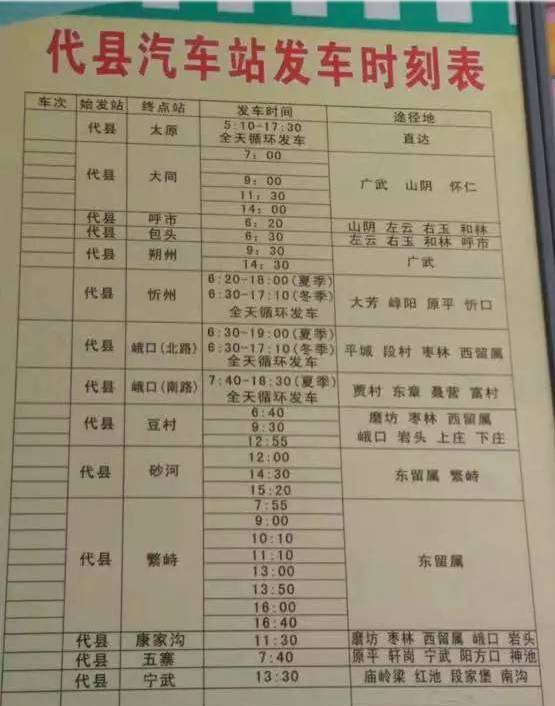 代县汽车站发车时刻表
车次 始发站 终点站 发车时间 途径地
代县 太原 5:10-17:30 直达
全天循环发车
代县 大同 7:00 广武 山阴 怀仁
9:00
11:30
14:00
代县 呼市 6:20 山阴 左云 右玉 和林
代县 包头 6:30 左云 右玉 和林 呼市
代县 朔州 9:30 广武
14:30
代县 忻州 6:20-18:00(夏季) 大芳 崞阳 原平 忻口
6:30-17:10(冬季)
全天循环发车
代县 峨口(北路) 6:30-19:00(夏季) 平城 段村 枣林 西留属
6:30-17:10(冬季)
全天循环发车
代县 峨口(南路) 7:40-18:30(夏季) 贾村 东章 聂营 富村
全天循环发车
代县 豆村 6:40 磨坊 枣林 西留属
9:30 峨口 岩头 上庄 下庄
12:55
代县 砂河 12:00 东留属 繁峙
14:30
15:20
代县 繁峙 7:55 东留属
9:00
10:10
11:10
13:00
13:50
16:00
16:40
代县 康家沟 11:30 磨坊 枣林 西留属 峨口 岩头
代县 五寨 7:40 原平 轩岗 宁武 阳方口 神池
代县 宁武 13:30 庙岭梁 红池 段家堡 南沟